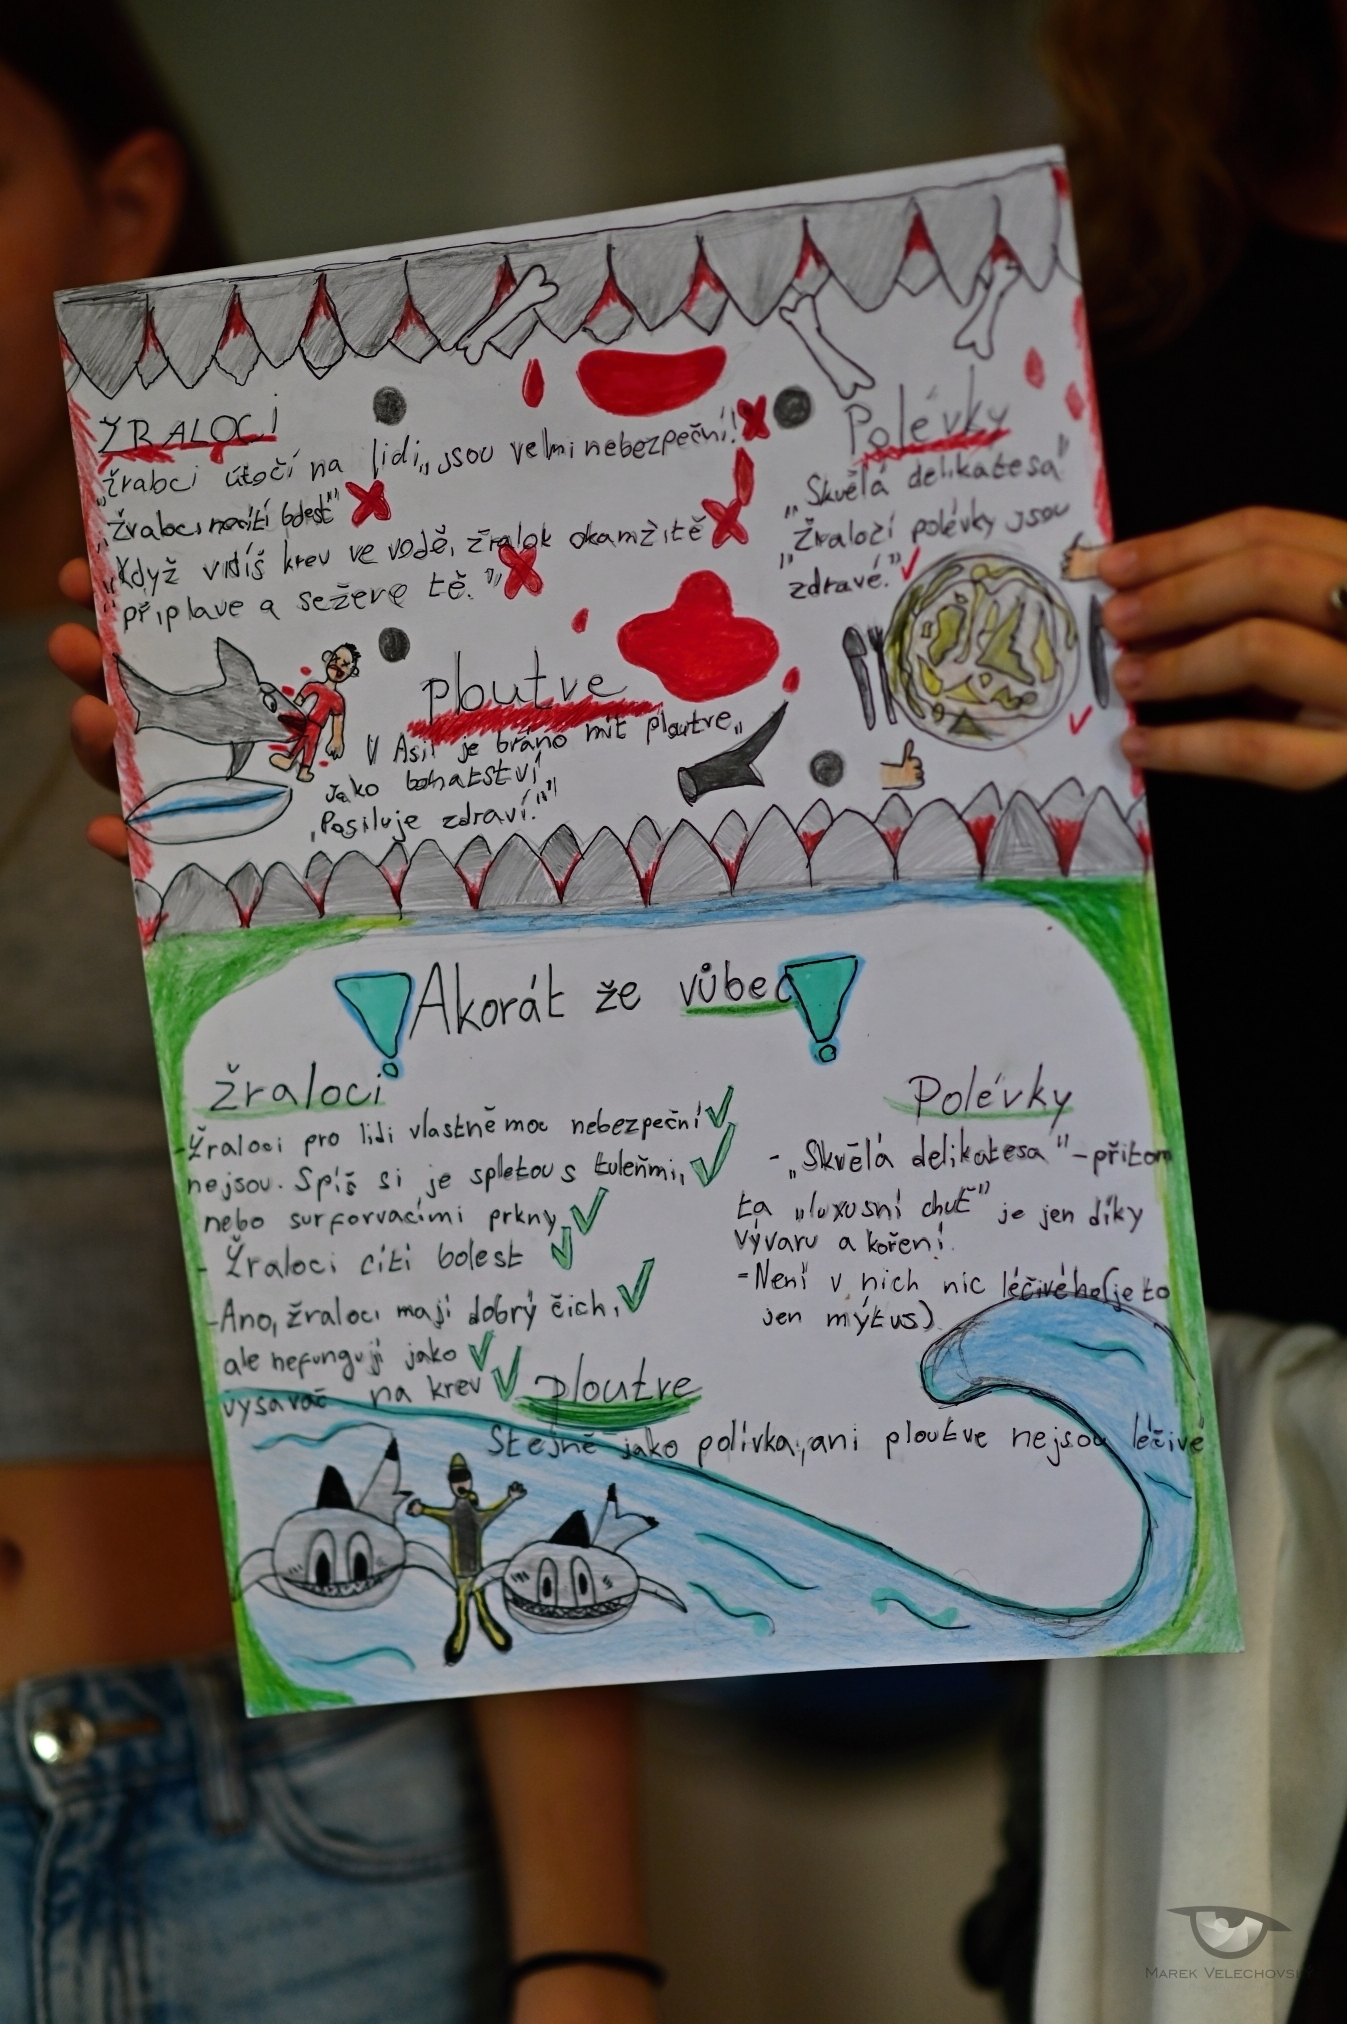 ŽRALOCI
„Žraloci útočí na lidi„ jsou velmi nebezpeční!
„Žraloci necítí bolest"
„Když vidíš krev ve vodě, žralok okamžitě
připlave a sežere tě."
Polévky
„Skvělá delikatesa"
„Žraločí polévky jsou
zdravé."
ploutve
V Asii je bráno mít ploutve„
jako bohatství
„Posiluje zdraví."
Akorát že vůbec
Žraloci
-Žraloci pro lidi vlastně moc nebezpeční
nejsou. Spíš si je spletou s tuleňmi,
nebo surfovacími prkny
- Žraloci cítí bolest
-Ano, žraloci mají dobrý čich,
ale nefungují jako
vysavač na krev
Polévky
- „Skvělá delikatesa" - přitom
ta „luxusní chuť" je jen díky
vývaru a koření.
-Není v nich nic léčivého(je to
jen mýtus)
ploutve
Stejně jako polívka, ani ploutve nejsou léčivé
MAREK VELECHOVSKÝ